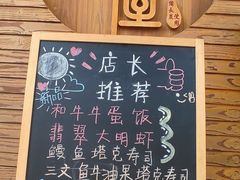 新品
店长
推荐
和牛牛蛋饭
翡翠大明虾
鳗鱼塔克寿司
三文鱼牛油果塔克寿司